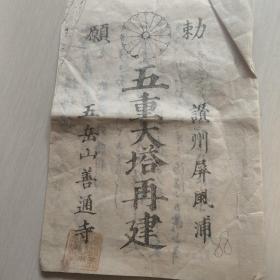 勅願
讃州屏風浦
五重大塔再建
五岳山善通寺
88